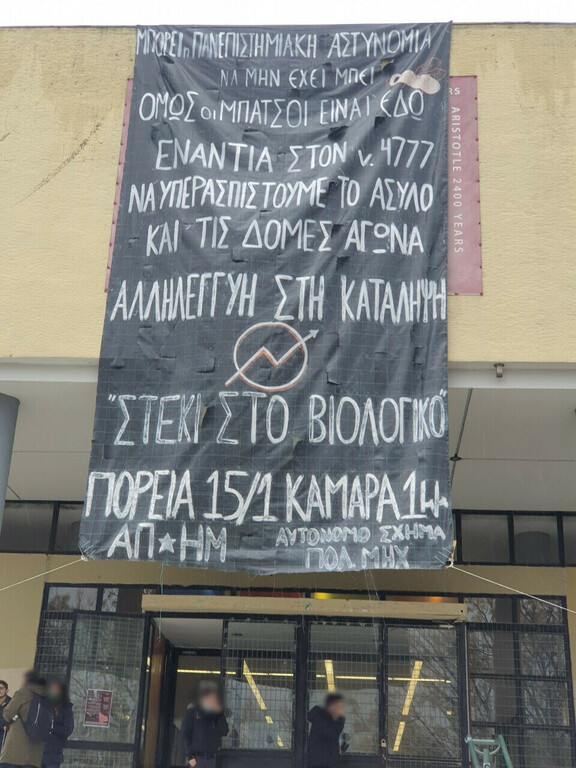 ΜΠΟΡΕΙ η ΠΑΝΕΠΙΣΤΗΜΙΑΚΗ ΑΣΤΥΝΟΜΙΑ
ΝΑ ΜΗΝ ΕΧΕΙ ΜΠΕΙ
ΟΜΩΣ οι ΜΠΑΤΣΟΙ ΕΙΝΑΙ ΕΔΩ
ΕΝΑΝΤΙΑ ΣΤΟΝ ν. 4777
ΝΑ ΥΠΕΡΑΣΠΙΣΤΟΥΜΕ ΤΟ ΑΣΥΛΟ
ΚΑΙ ΤΙΣ ΔΟΜΕΣ ΑΓΩΝΑ
ΑΛΛΗΛΕΓΓΥΗ ΣΤΗ ΚΑΤΑΛΗΨΗ
"ΣΤΕΚΙ ΣΤΟ ΒΙΟΛΟΓΙΚΟ"
ΠΟΡΕΙΑ 15/1 ΚΑΜΑΡΑ 1μμ
ΑΠ★ΗΜ
ΑΥΤΟΝΟΜΟ ΣΧΗΜΑ
ΠΟΛ.ΜΗΧ
RS
ARISTOTLE 2400 YEARS